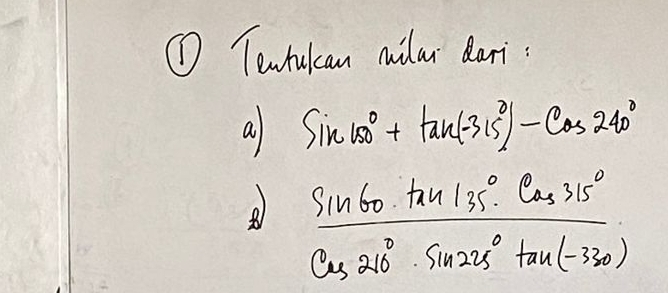 ① Tentukan nilai dari :
a) Sin 150° + tan(-315°) - Cos 240°
b) Sin 60 . tan 135° . Cos 315°
Cos 210° . Sin 225° tan (-330)